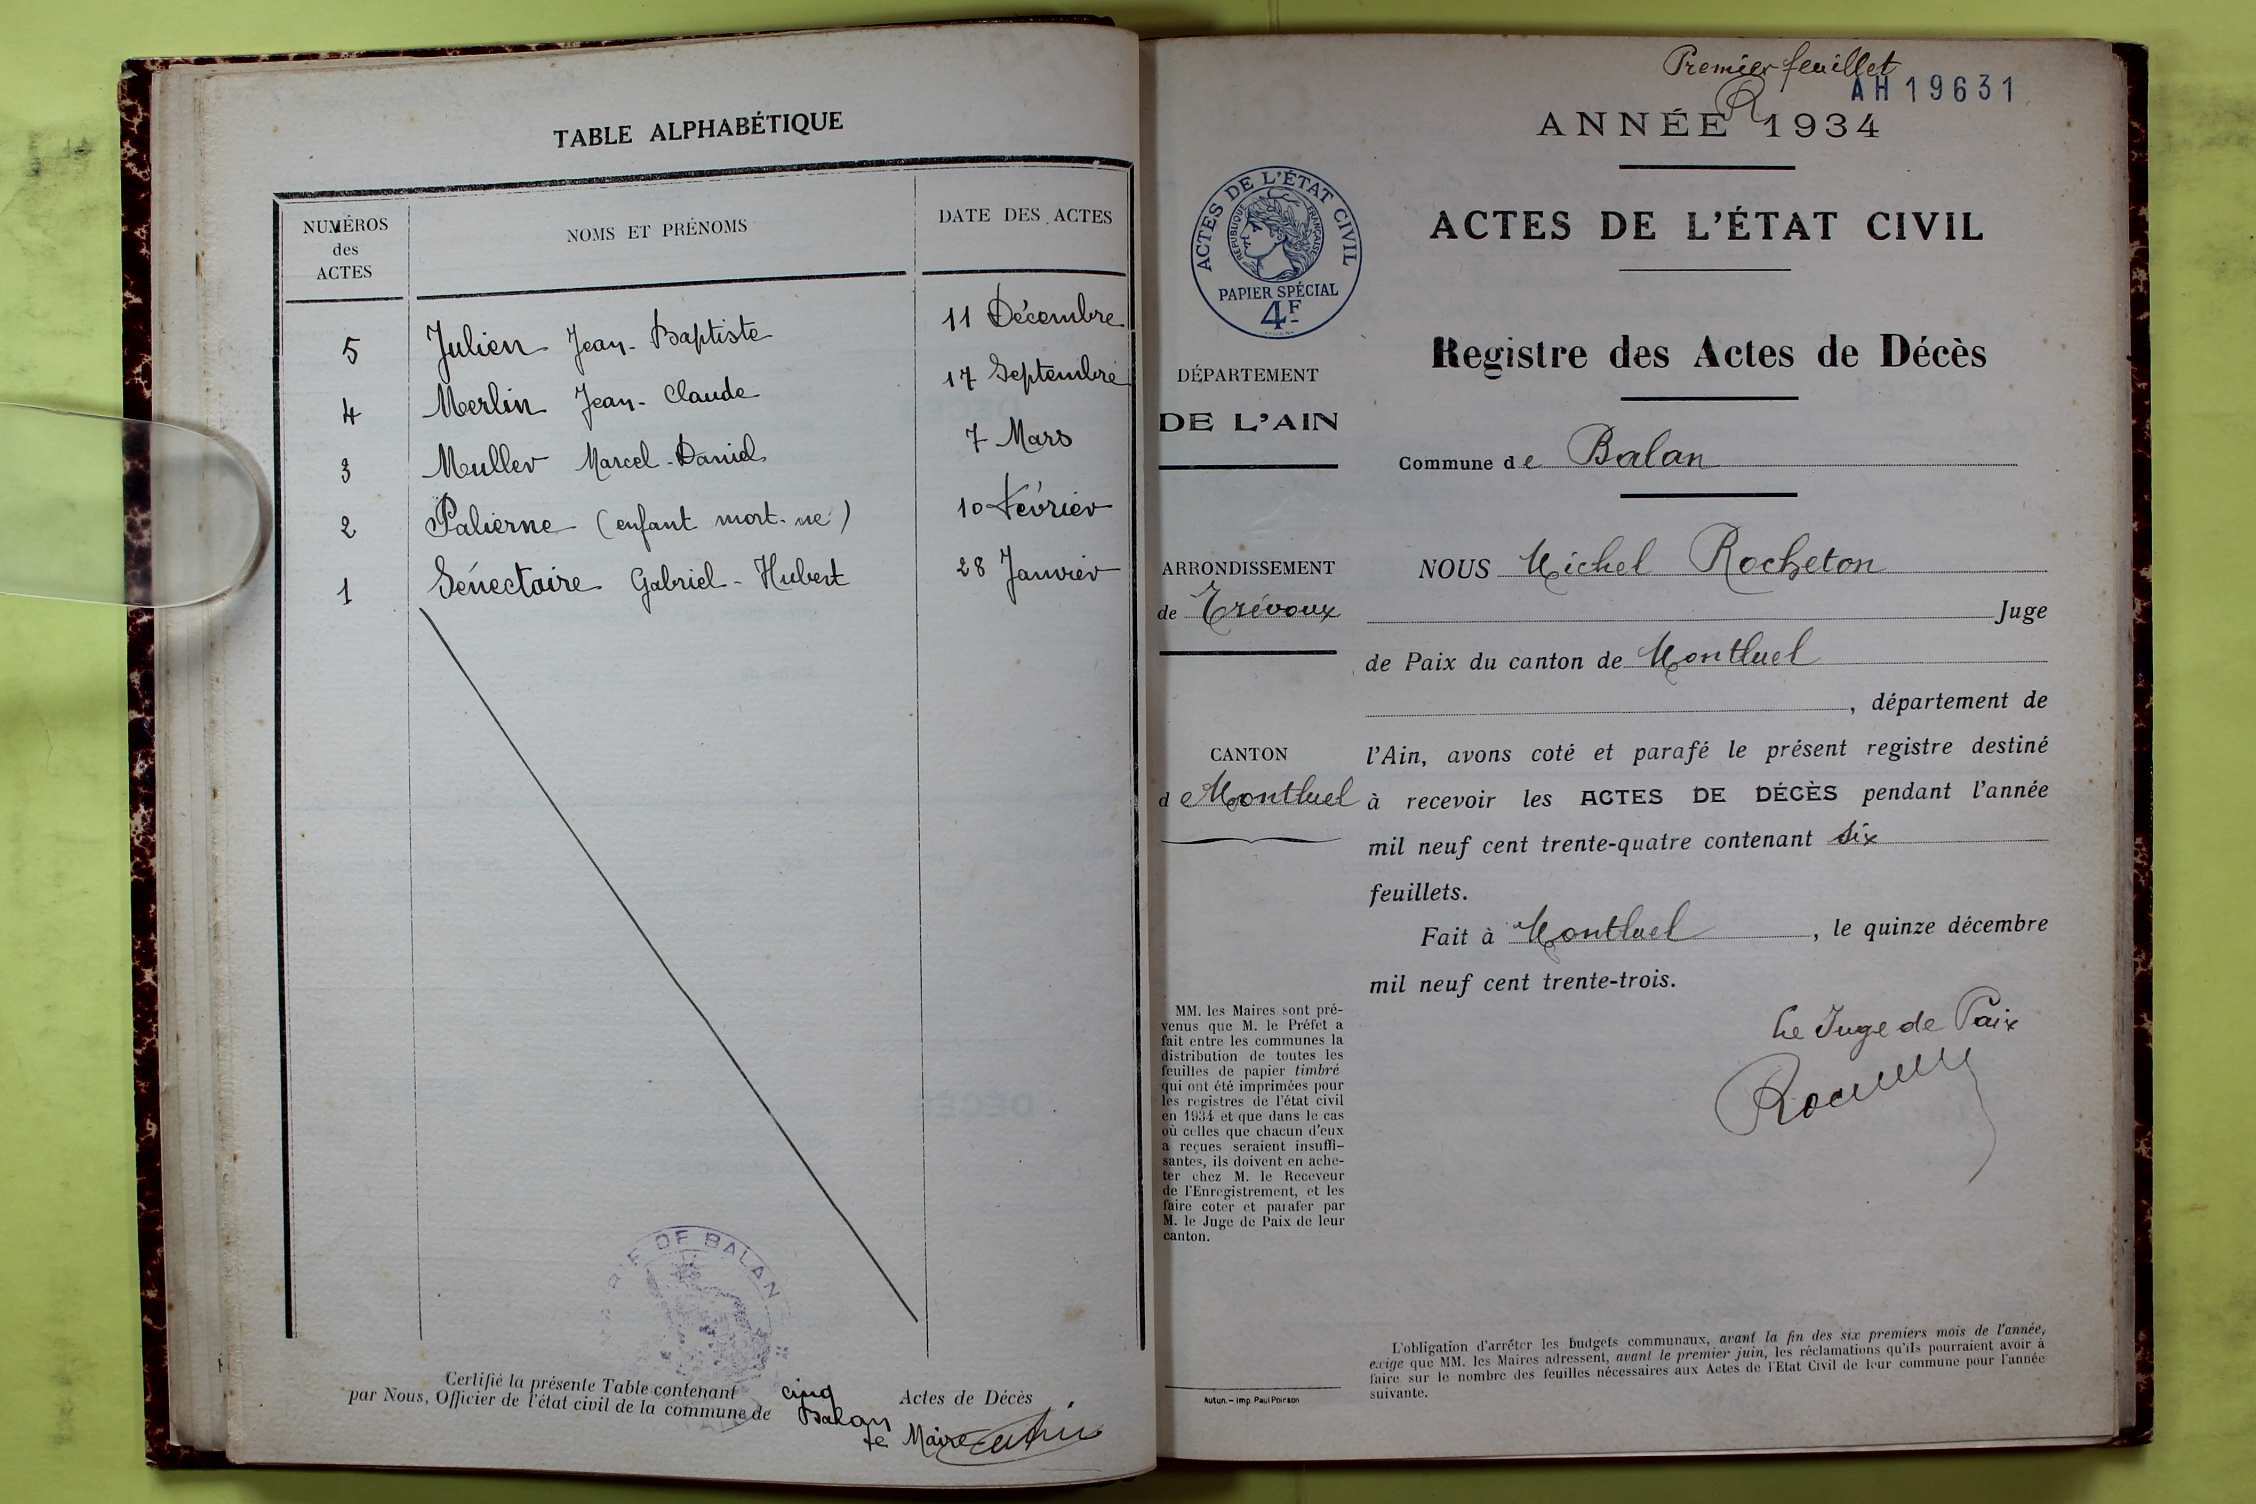 TABLE ALPHABÉTIQUE
NUMÉROS
des
ACTES
NOMS ET PRÉNOMS
DATE DES ACTES
5 Julien Jean-Baptiste 11 Décembre
4 Merlin Jean-Claude 17 Septembre
3 Muller Marcel-Daniel 7 Mars
2 Palierne (enfant mort-né) 10 Février
1 Sénectaire Gabriel-Hubert 28 Janvier
DE BALAN
Certifié la présente Table contenant cinq Actes de Décès
par Nous, Officier de l'état civil de la commune de Balan
Le Maire
Premier feuillet
AH19631
R
ANNÉE 1934
ACTES DE L'ÉTAT CIVIL
RÉPUBLIQUE FRANÇAISE
PAPIER SPÉCIAL
4F
ACTES DE L'ÉTAT CIVIL
Registre des Actes de Décès
DÉPARTEMENT
DE L'AIN
Commune de Balan
ARRONDISSEMENT
de Trévoux
CANTON
de Montluel
NOUS Michel Rocheton
Juge
de Paix du canton de Montluel
, département de
l'Ain, avons coté et parafé le présent registre destiné
à recevoir les ACTES DE DÉCÈS pendant l'année
mil neuf cent trente-quatre contenant six
feuillets.
Fait à Montluel, le quinze décembre
mil neuf cent trente-trois.
Le Juge de Paix
MM. les Maires sont pré-
venus que M. le Préfet a
fait entre les communes la
distribution de toutes les
feuilles de papier timbré
qui ont été imprimées pour
les registres de l'état civil
en 1934 et que dans le cas
où celles que chacun d'eux
a reçues seraient insuffi-
santes, ils doivent en ache-
ter chez M. le Receveur
de l'Enregistrement, et les
faire coter et parafer par
M. le Juge de Paix de leur
canton.
L'obligation d'arrêter les budgets communaux, avant la fin des six premiers mois de l'année,
exige que MM. les Maires adressent, avant le premier juin, les réclamations qu'ils pourraient avoir à
faire sur le nombre des feuilles nécessaires aux Actes de l'Etat Civil de leur commune pour l'année
suivante.
Autun. – Imp. Paul Poirson